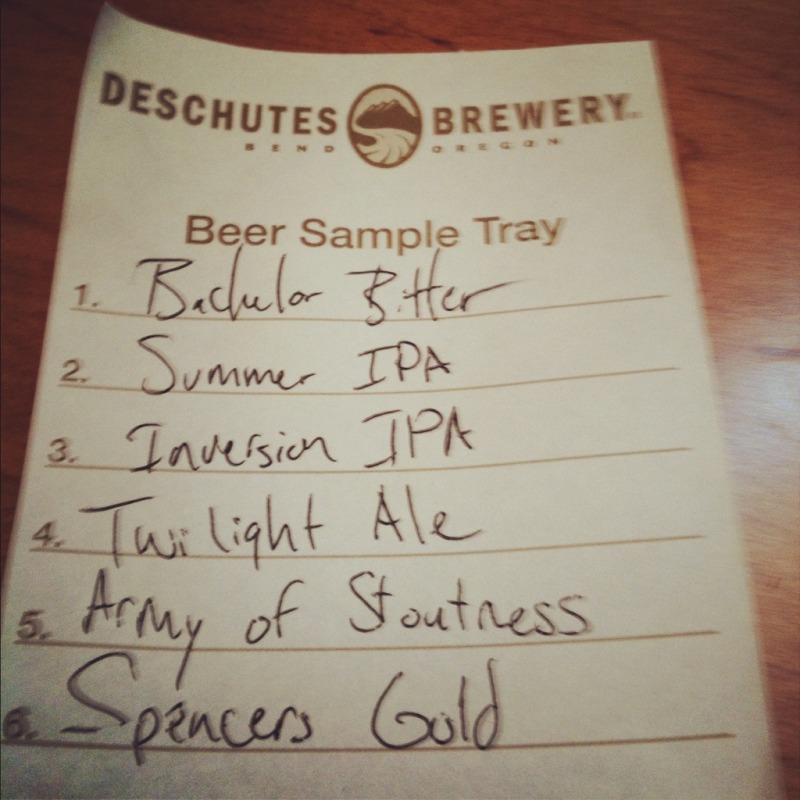 DESCHUTES BREWERY
BEND OREGON
Beer Sample Tray
1. Bachelor Bitter
2. Summer IPA
3. Inversion IPA
4. Twilight Ale
5. Army of Stoutness
6. Spencers Gold